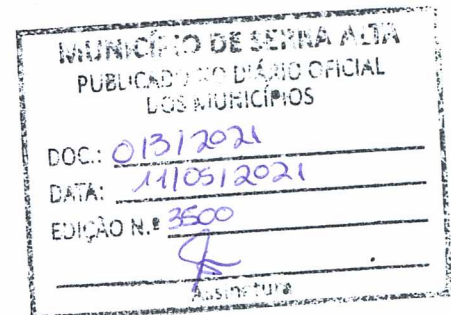 MUNICÍPIO DE SERRA ALTA
PUBLICADO NO DIÁRIO OFICIAL
DOS MUNICÍPIOS
DOC.: 013/2021
DATA: 11/05/2021
EDIÇÃO N.º 3500
Assinatura